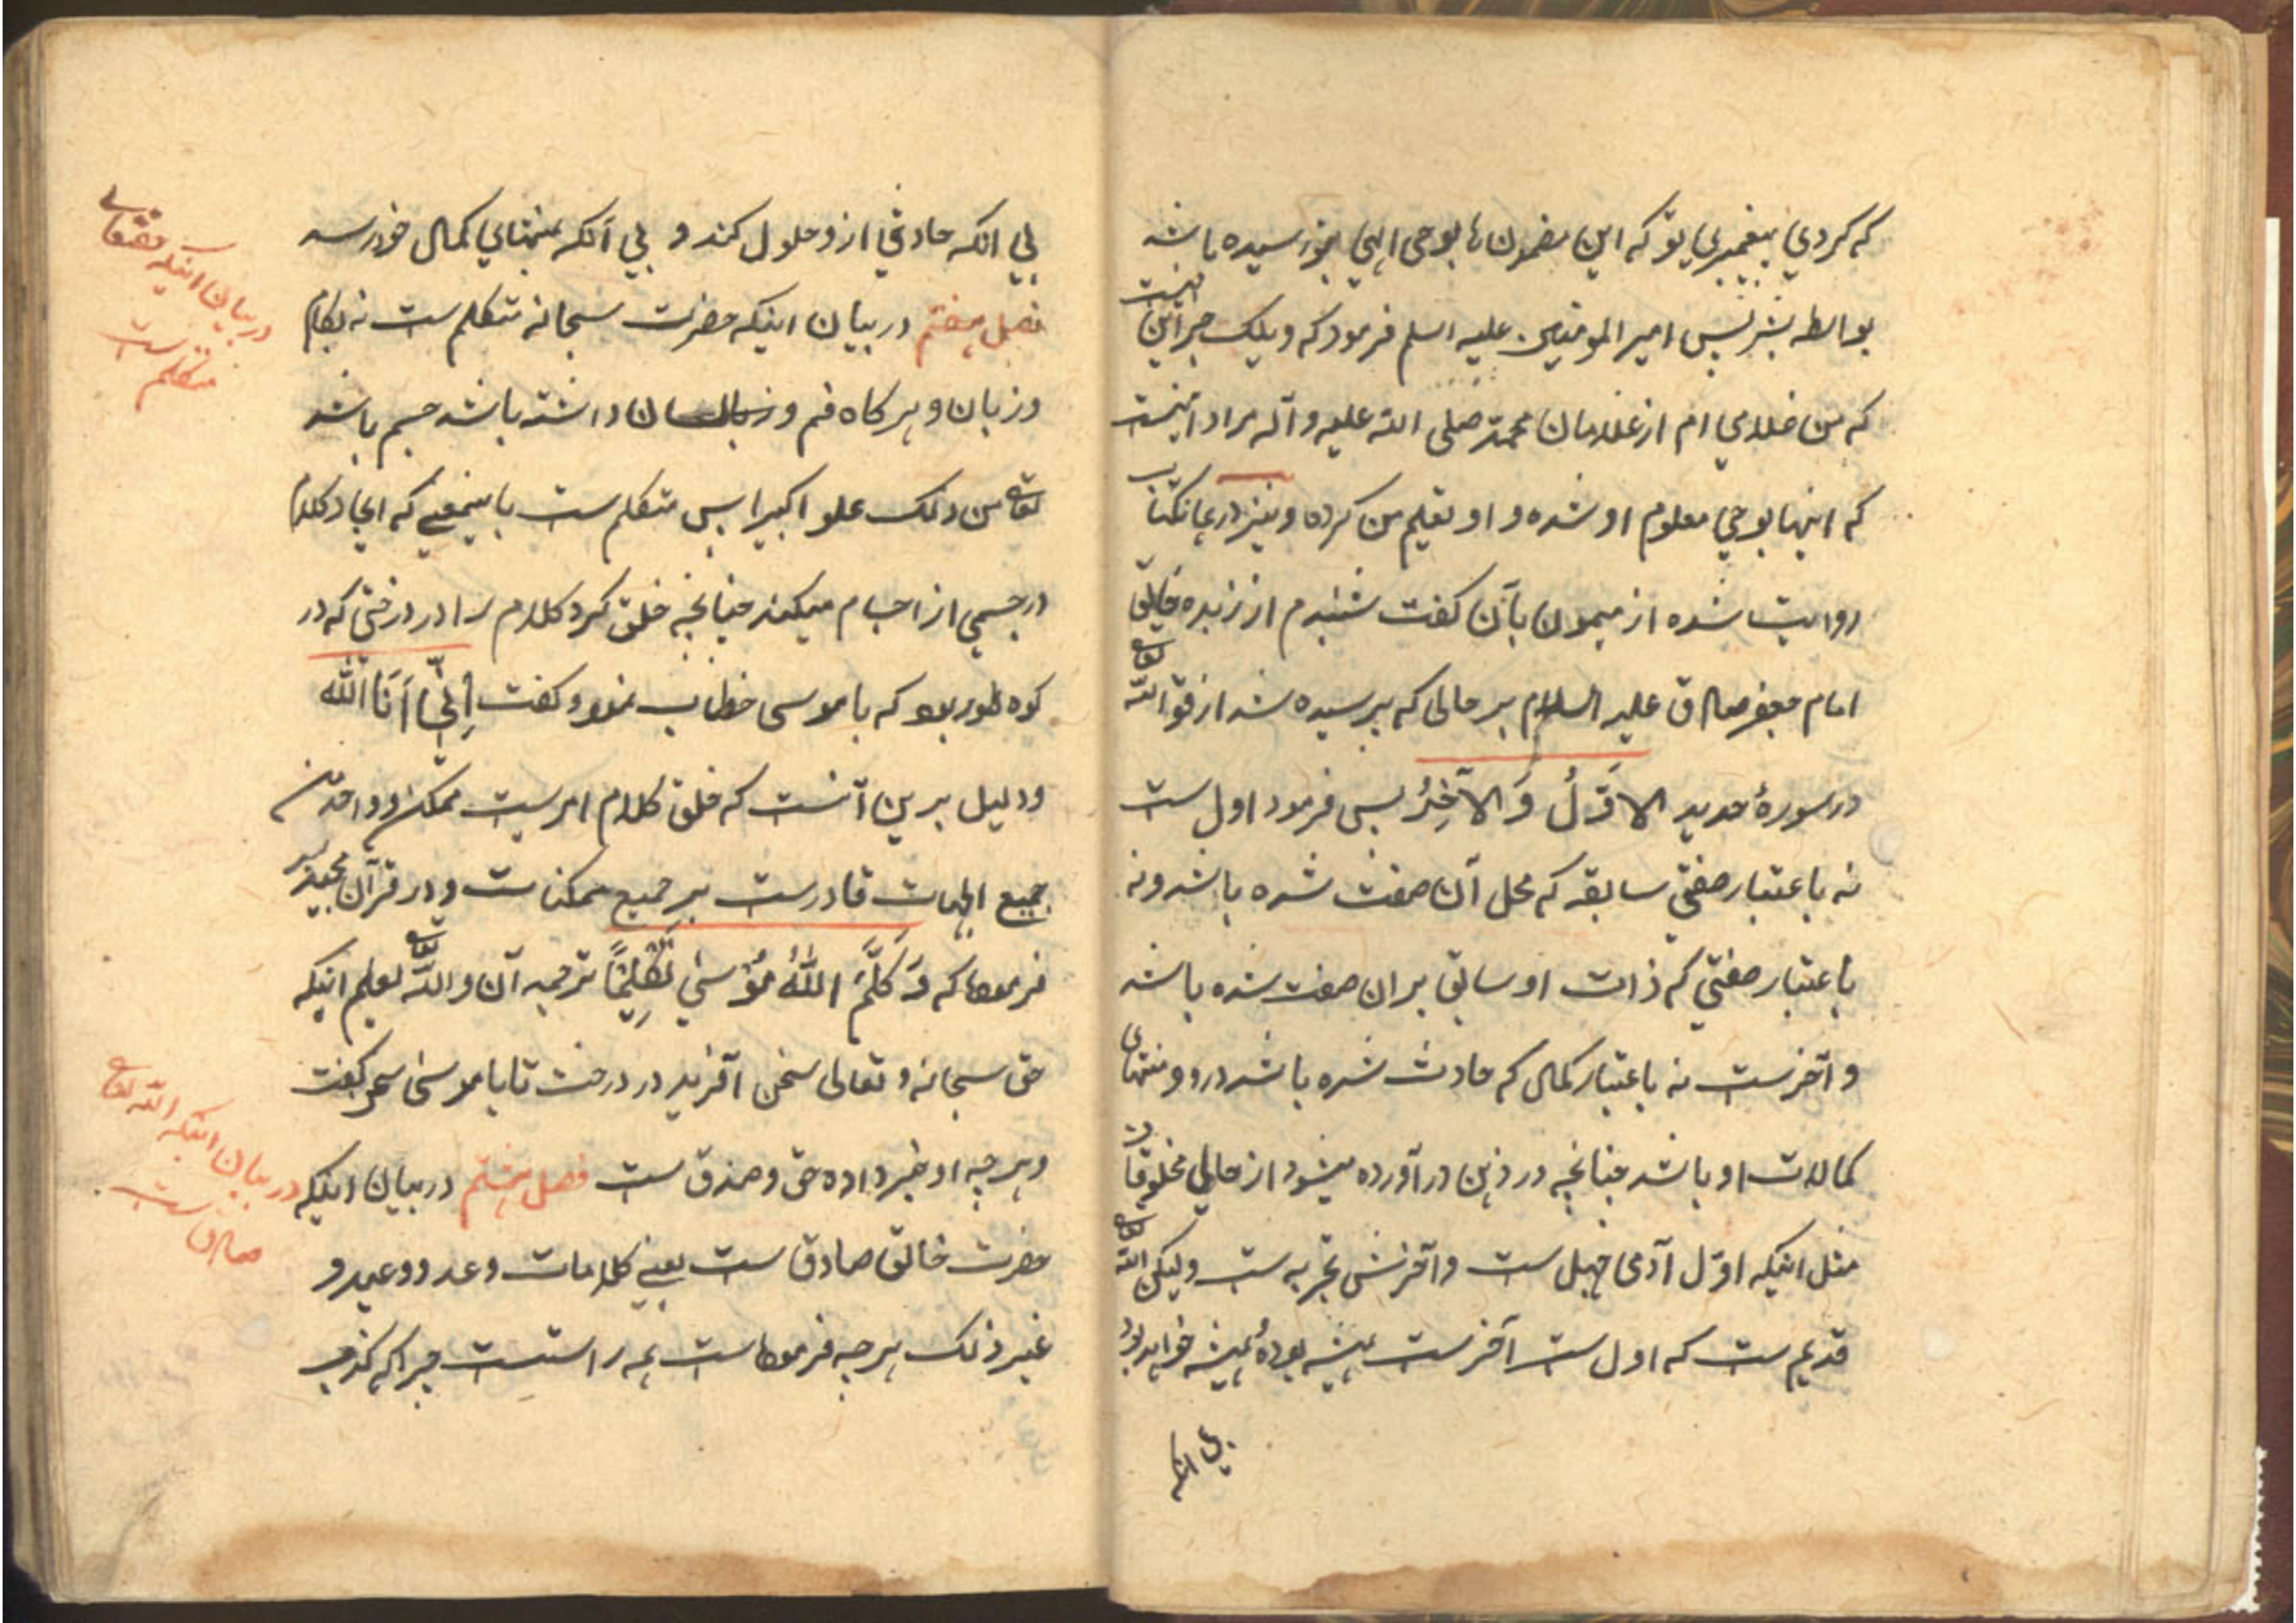 که کردی پیغمبری تو که این مضمونها بوحی الهی بتو رسیده باشد
بواسطه بشر پس امیر المومنین علیه اسلم فرمود که ویلک جز این نیست
که من غلامی ام از غلامان محمد صلی الله علیه وآله مراد اینست
که اینها بوحی معلوم او شده و او تعلیم من کرده و نیز در همان کتاب
روایت شده از میمون بآن کفت شنیدم از
امام جعفر صادق علیه السلام بر حالی که پرسیده شد از قو الله تعا
در سورهٔ حدید الاَوَّلُ وَ الآخِرُ پس فرمود اول ست
نه باعتبار صفتی سابقه که محل آن صفت شده باشد و نه
باعتبار صفتی که ذات او سابق بران صفت شده باشد
و آخرست نه باعتبار کمالی که حادث شده باشد درو و منتهای
کمالات او باشد چنانچه در ذهن در آورده میشود از حالی مخلوقات
مثل اینکه اوّل آدمی جهل ست و آخرش تجربه ست ولیکن الله تعا
قدیم ست که اول ست آخرست همیشه بوده همیشه خواهد بود
بی انکه
بی انکه حادثی ازو حلول کند و بی آنکه بمنتهای کمال خود رسد
فصل هفتم در بیان اینکه حضرت سبحانه متکلم ست نه بکام
و زبان و هر کاه فم و لسان داشته باشد جسم باشد
تعا من ذلک علو اکبیرا پس متکلم ست باینمعنی که ایجاد کلام
در جسمی از اجسام میکند چنانچه خلق کرد کلام را در درختی که در
کوه طور بود که با موسی خطاب نمود و کفت اِنِّی اَنَا الله
و دلیل برین آنست که خلق کلام امریست ممکن و واحد من
جمیع الجهات قادرست بر جمیع ممکنات و در قرآن مجید
فرموده که وَ کَلَّمَ اللهُ مُوْسٰی تَکْلِیْمًا ترجمه آن و الله تعا یعلم اینکه
حق سبحانه و تعالی سخن آفرید در درخت تا با موسی سخن کفت
و هر چه او خبر داده حق و صدق ست فصل هشتم در بیان اینکه
حضرت خالق صادق ست یعنی کلامات وعد و وعید و
غیر ذلک هر چه فرموده است همه راستست چرا که کذب
در بیان اینکه حقتعالی
متکلم ست
در بیان اینکه الله تعا
صادق ست